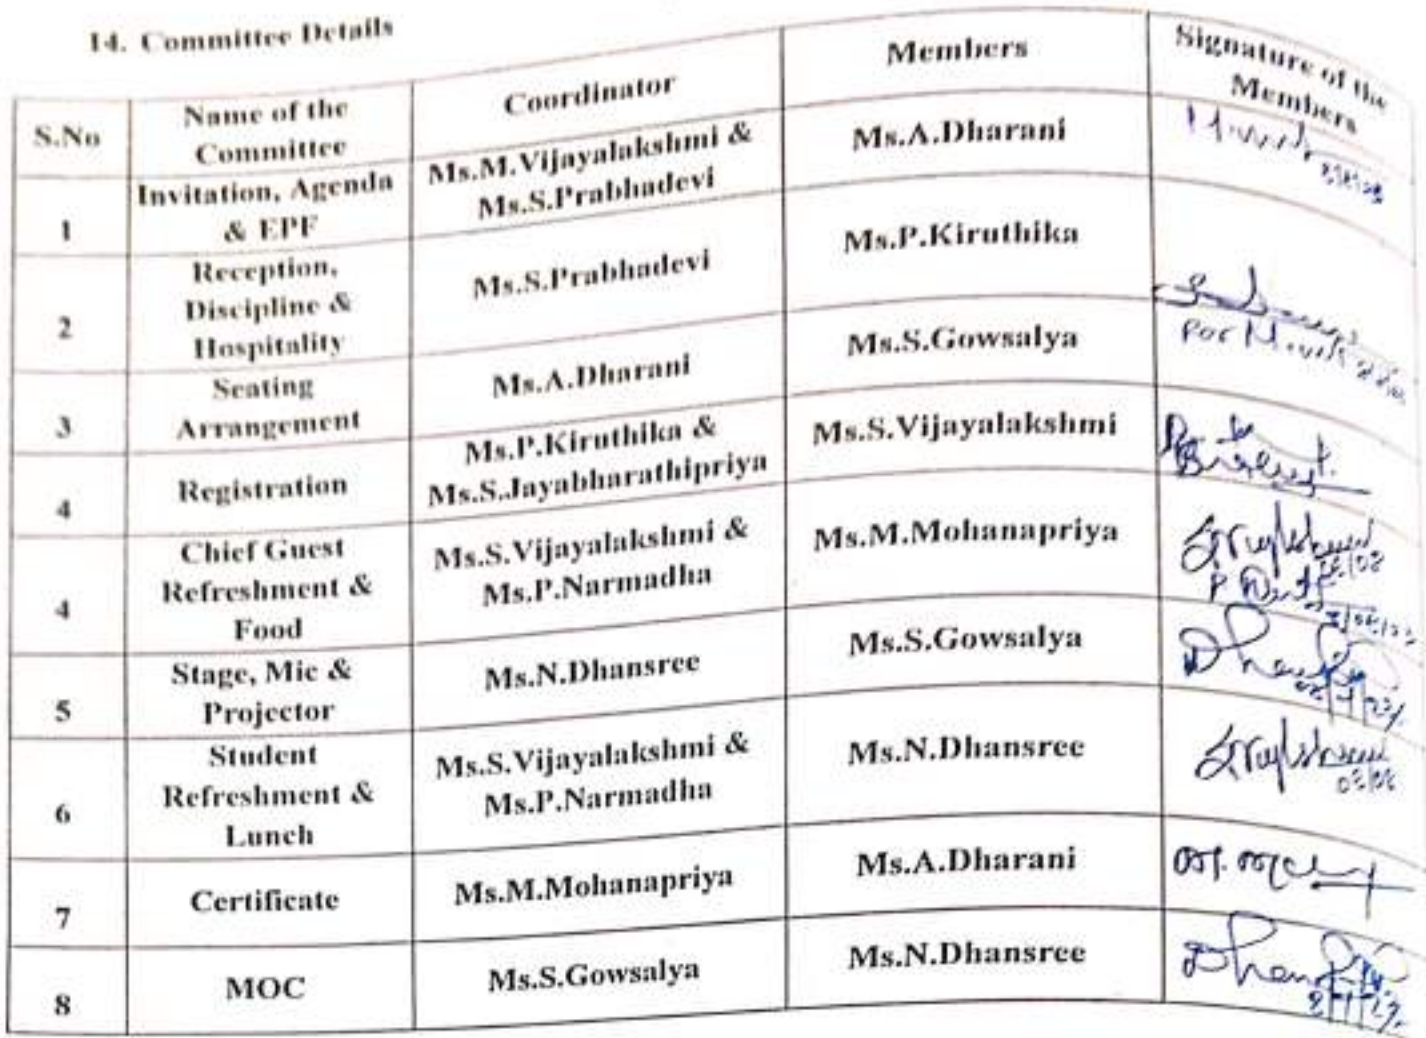 14. Committee Details
S.No
Name of the
Committee
Coordinator
Members
Signature of the
Members
1
Invitation, Agenda
& EPF
Ms.M.Vijayalakshmi &
Ms.S.Prabhadevi
Ms.A.Dharani
2
Reception,
Discipline &
Hospitality
Ms.S.Prabhadevi
Ms.P.Kiruthika
3
Seating
Arrangement
Ms.A.Dharani
Ms.S.Gowsalya
For
4
Registration
Ms.P.Kiruthika &
Ms.S.Jayabharathipriya
Ms.S.Vijayalakshmi
4
Chief Guest
Refreshment &
Food
Ms.S.Vijayalakshmi &
Ms.P.Narmadha
Ms.M.Mohanapriya
5
Stage, Mic &
Projector
Ms.N.Dhansree
Ms.S.Gowsalya
6
Student
Refreshment &
Lunch
Ms.S.Vijayalakshmi &
Ms.P.Narmadha
Ms.N.Dhansree
7
Certificate
Ms.M.Mohanapriya
Ms.A.Dharani
8
MOC
Ms.S.Gowsalya
Ms.N.Dhansree